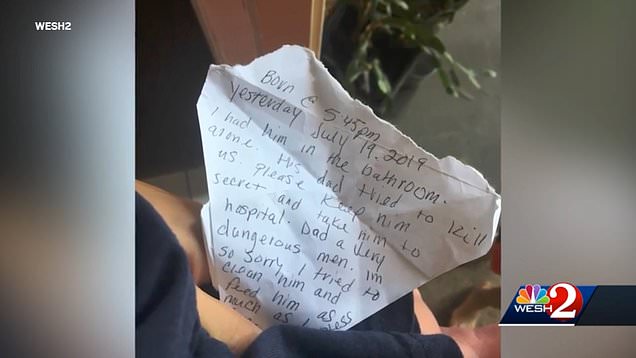 WESH2
Born @ 5:45pm
Yesterday July 19. 2019
I had him in the bathroom.
alone. His dad tried to kill
us. please keep him
secret and take him to
hospital. Dad a very
dungerous men. Im
so sorry. I tried to
clean him and
feed him as
much as I
WESH 2